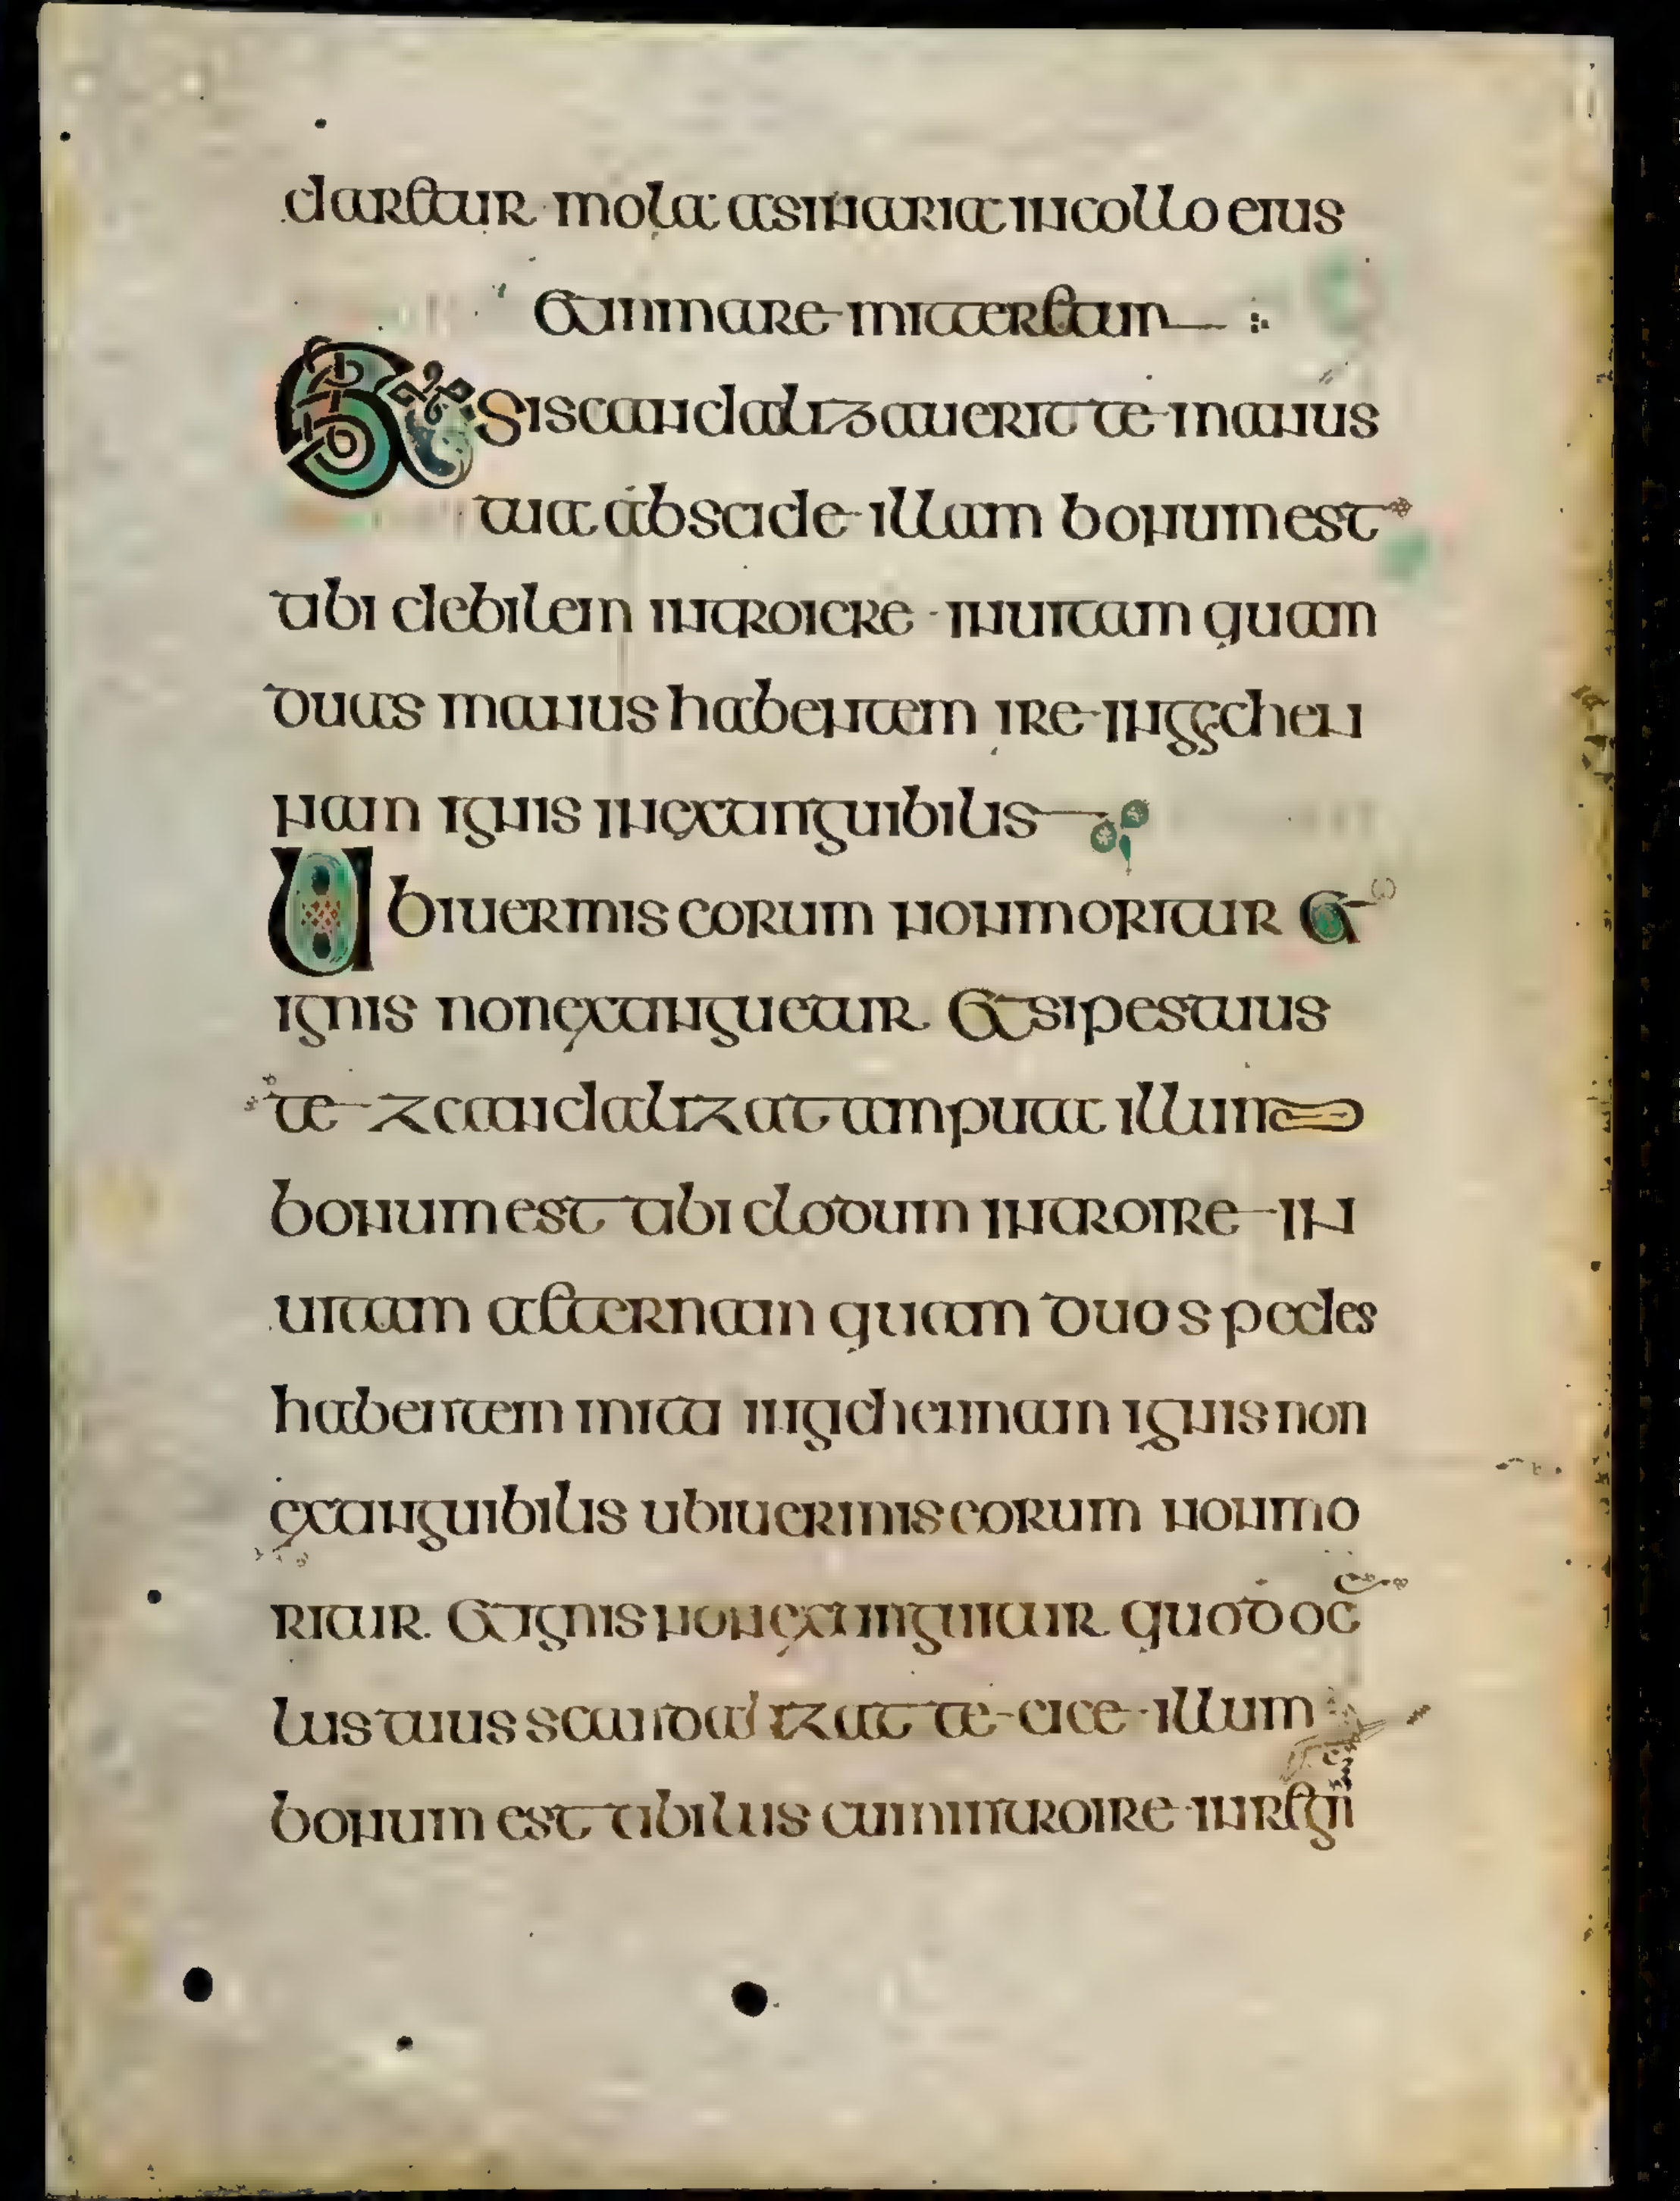 daretur mola asinaria in collo eius
et in mare mitteretur
Et si scandalizauerit te manus
tua abscide illam bonum est
tibi debilem introiere in uitam quam
duas manus habentem ire in geehen
nam ignis inextinguibilis
Ubi uermis eorum non moritur et
ignis non extinguetur et si pes tuus
te zcandalizat amputa illum
bonum est tibi clodum introire in
uitam aeternam quam duos pedes
habentem miti in gehennam ignis non
extinguibilis ubi uermis eorum non mo
ritur et ignis non extinguitur quod oc
lus tuus scandalizat te eice illum
bonum est tibi luscum introire in regn